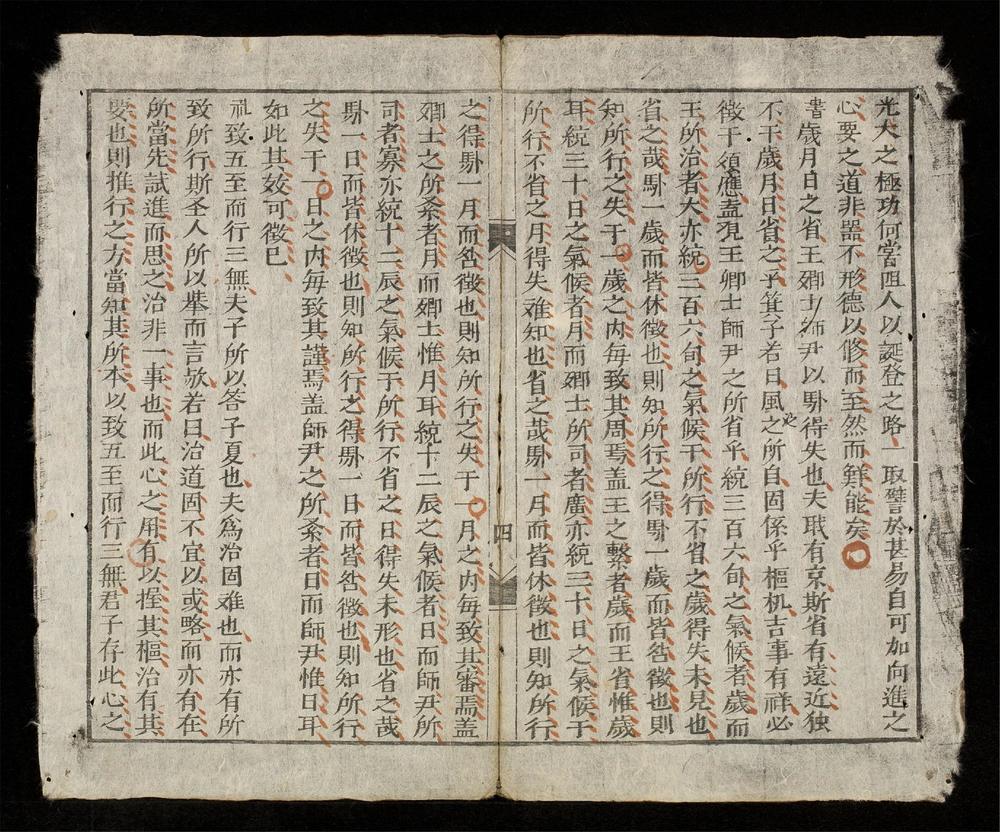 光大之極功何嘗阻人以誕登之路一取譬於甚易自可加向進之
心要之道非器不形德以修而至然而鮮能矣
書歲月日之省王卿士師尹以馸得失也夫戝有京斯省有遠近独
不干歲月日省之乎箕子若曰風之所自固係乎樞机吉事有祥必
史
徵于須應盖覌王卿士師尹之所省乎統三百六旬之氣候者歲而
王所治者大亦統三百六旬之氣候于所行不省之歲得失未見也
省之哉馸一歲而皆休徵也則知所行之得馸一歲而皆咎徵也則
知所行之失于一歲之内毎致其周焉盖王之繫者歲而王省惟歲
耳統三十日之氣候者月而卿士所司者廣亦統三十日之氣候于
所行不省之月得失难知也省之哉馸一月而皆休徵也則知所行
四
之得馸一月而咎徵也則知所行之失于一月之内毎致其審焉盖
卿士之所系者月而卿士惟月耳統十二辰之氣候者日而師尹所
司者寡亦統十二辰之氣候于所行不省之日得失未形也省之哉
馸一日而皆休徵也則知所行之得馸一日而皆咎徵也則知所行
之失于一日之内毎致其謹焉盖師尹之所系者日而師尹惟日耳
如此其效可徵已
礼致五至而行三無夫子所以答子夏也夫爲治固难也而亦有所
致所行斯圣人所以舉而言欤若曰治道固不宜以或略而亦有在
所當先試進而思之治非一事也而此心之用有以握其樞治有其
要也則推行之方當知其所本以致五至而行三無君子存此心之